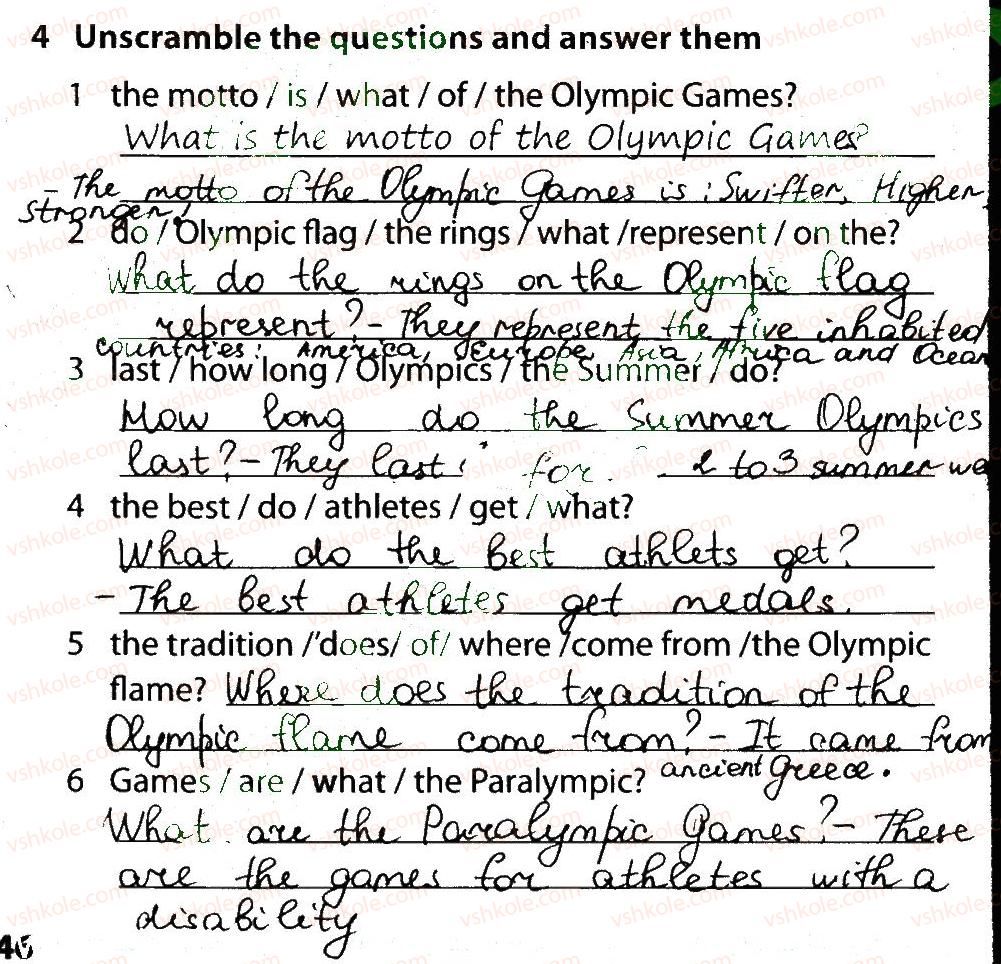 4 Unscramble the questions and answer them
1 the motto / is / what / of / the Olympic Games?
What is the motto of the Olympic Games?
- The motto of the Olympic Games is: Swifter, Higher,
stronger!
2 do / Olympic flag / the rings / what /represent / on the?
What do the rings on the Olympic flag
represent? - They represent the five inhabited
countries: America, Europe, Asia, Africa and Ocean
3 last / how long / Olympics / the Summer / do?
How long do the Summer Olympics
last? - They last for 2 to 3 summer we
4 the best / do / athletes / get / what?
What do the best athlets get?
- The best athletes get medals.
5 the tradition /'does/ of/ where /come from /the Olympic
flame? Where does the tradition of the
Olympic flame come from? - It came from
ancient Greece.
6 Games / are / what / the Paralympic?
What are the Paralympic Games? - These
are the games for athletes with a
disability
46